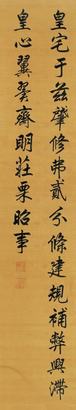 皇宅于兹肇修弗貳分條建規補弊興滯
皇心翼翼齊明莊栗昭事